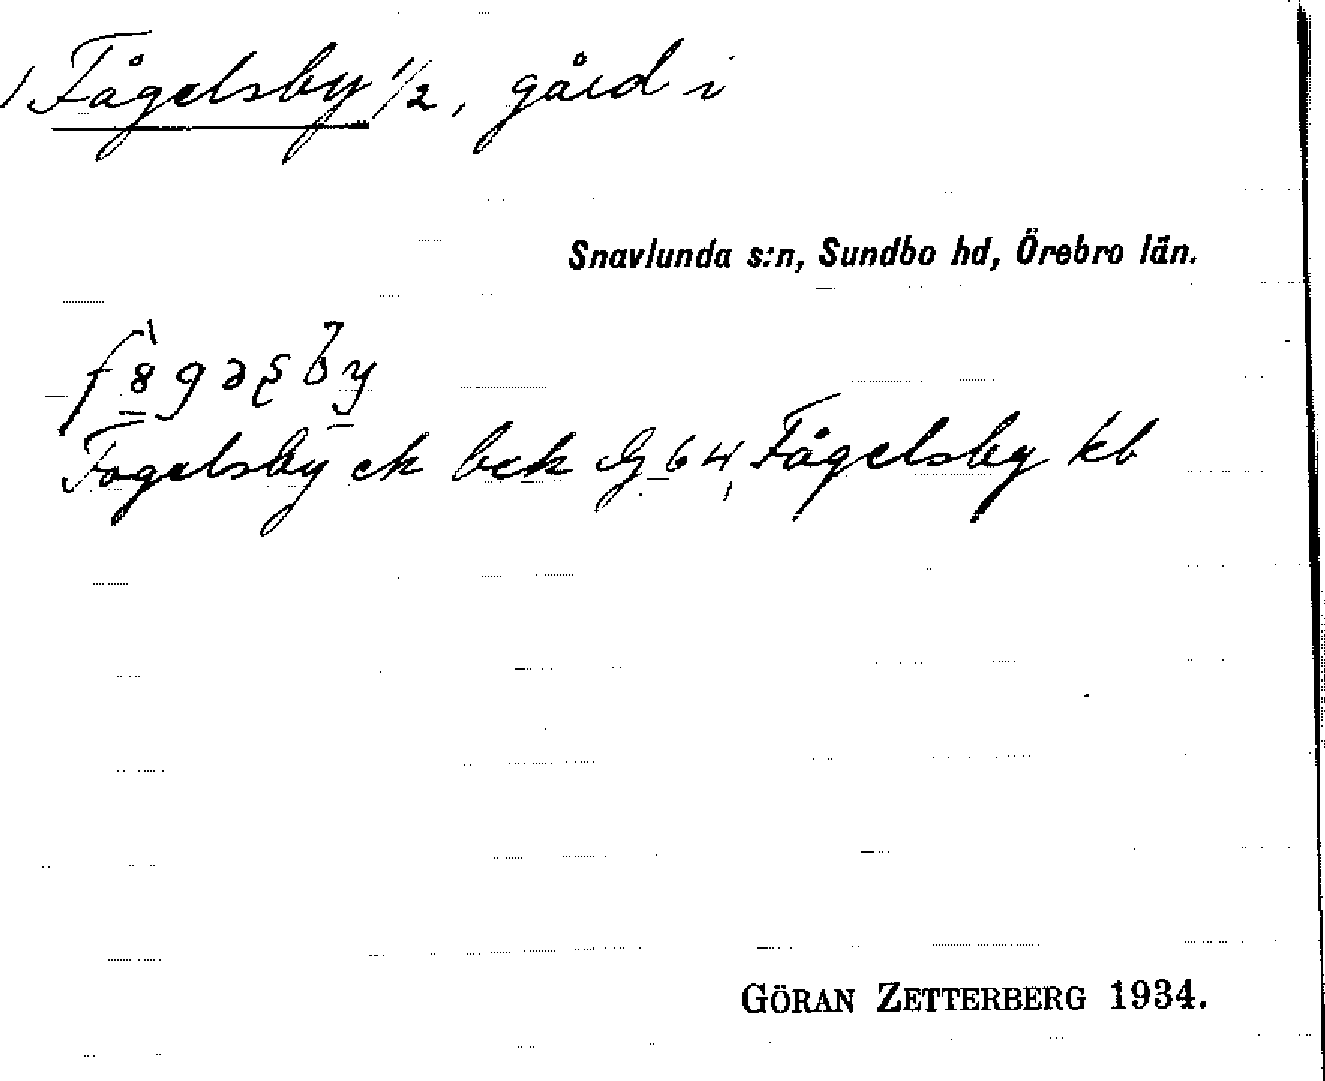 Fågelsby 1/2, gård i
Snavlunda s:n, Sundbo hd, Örebro län.
Fogelsby ek bek G 64, Fågelsby kb
GÖRAN ZETTERBERG 1934.